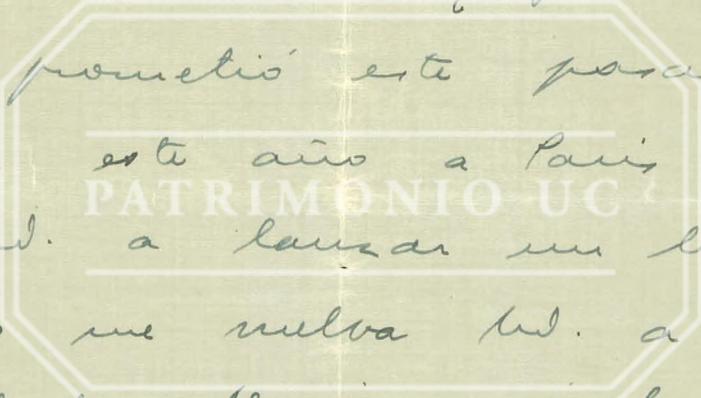 prometió este pasa
este año a Paris
PATRIMONIO UC
d. a lanzar un l
me vuelva Ud. a